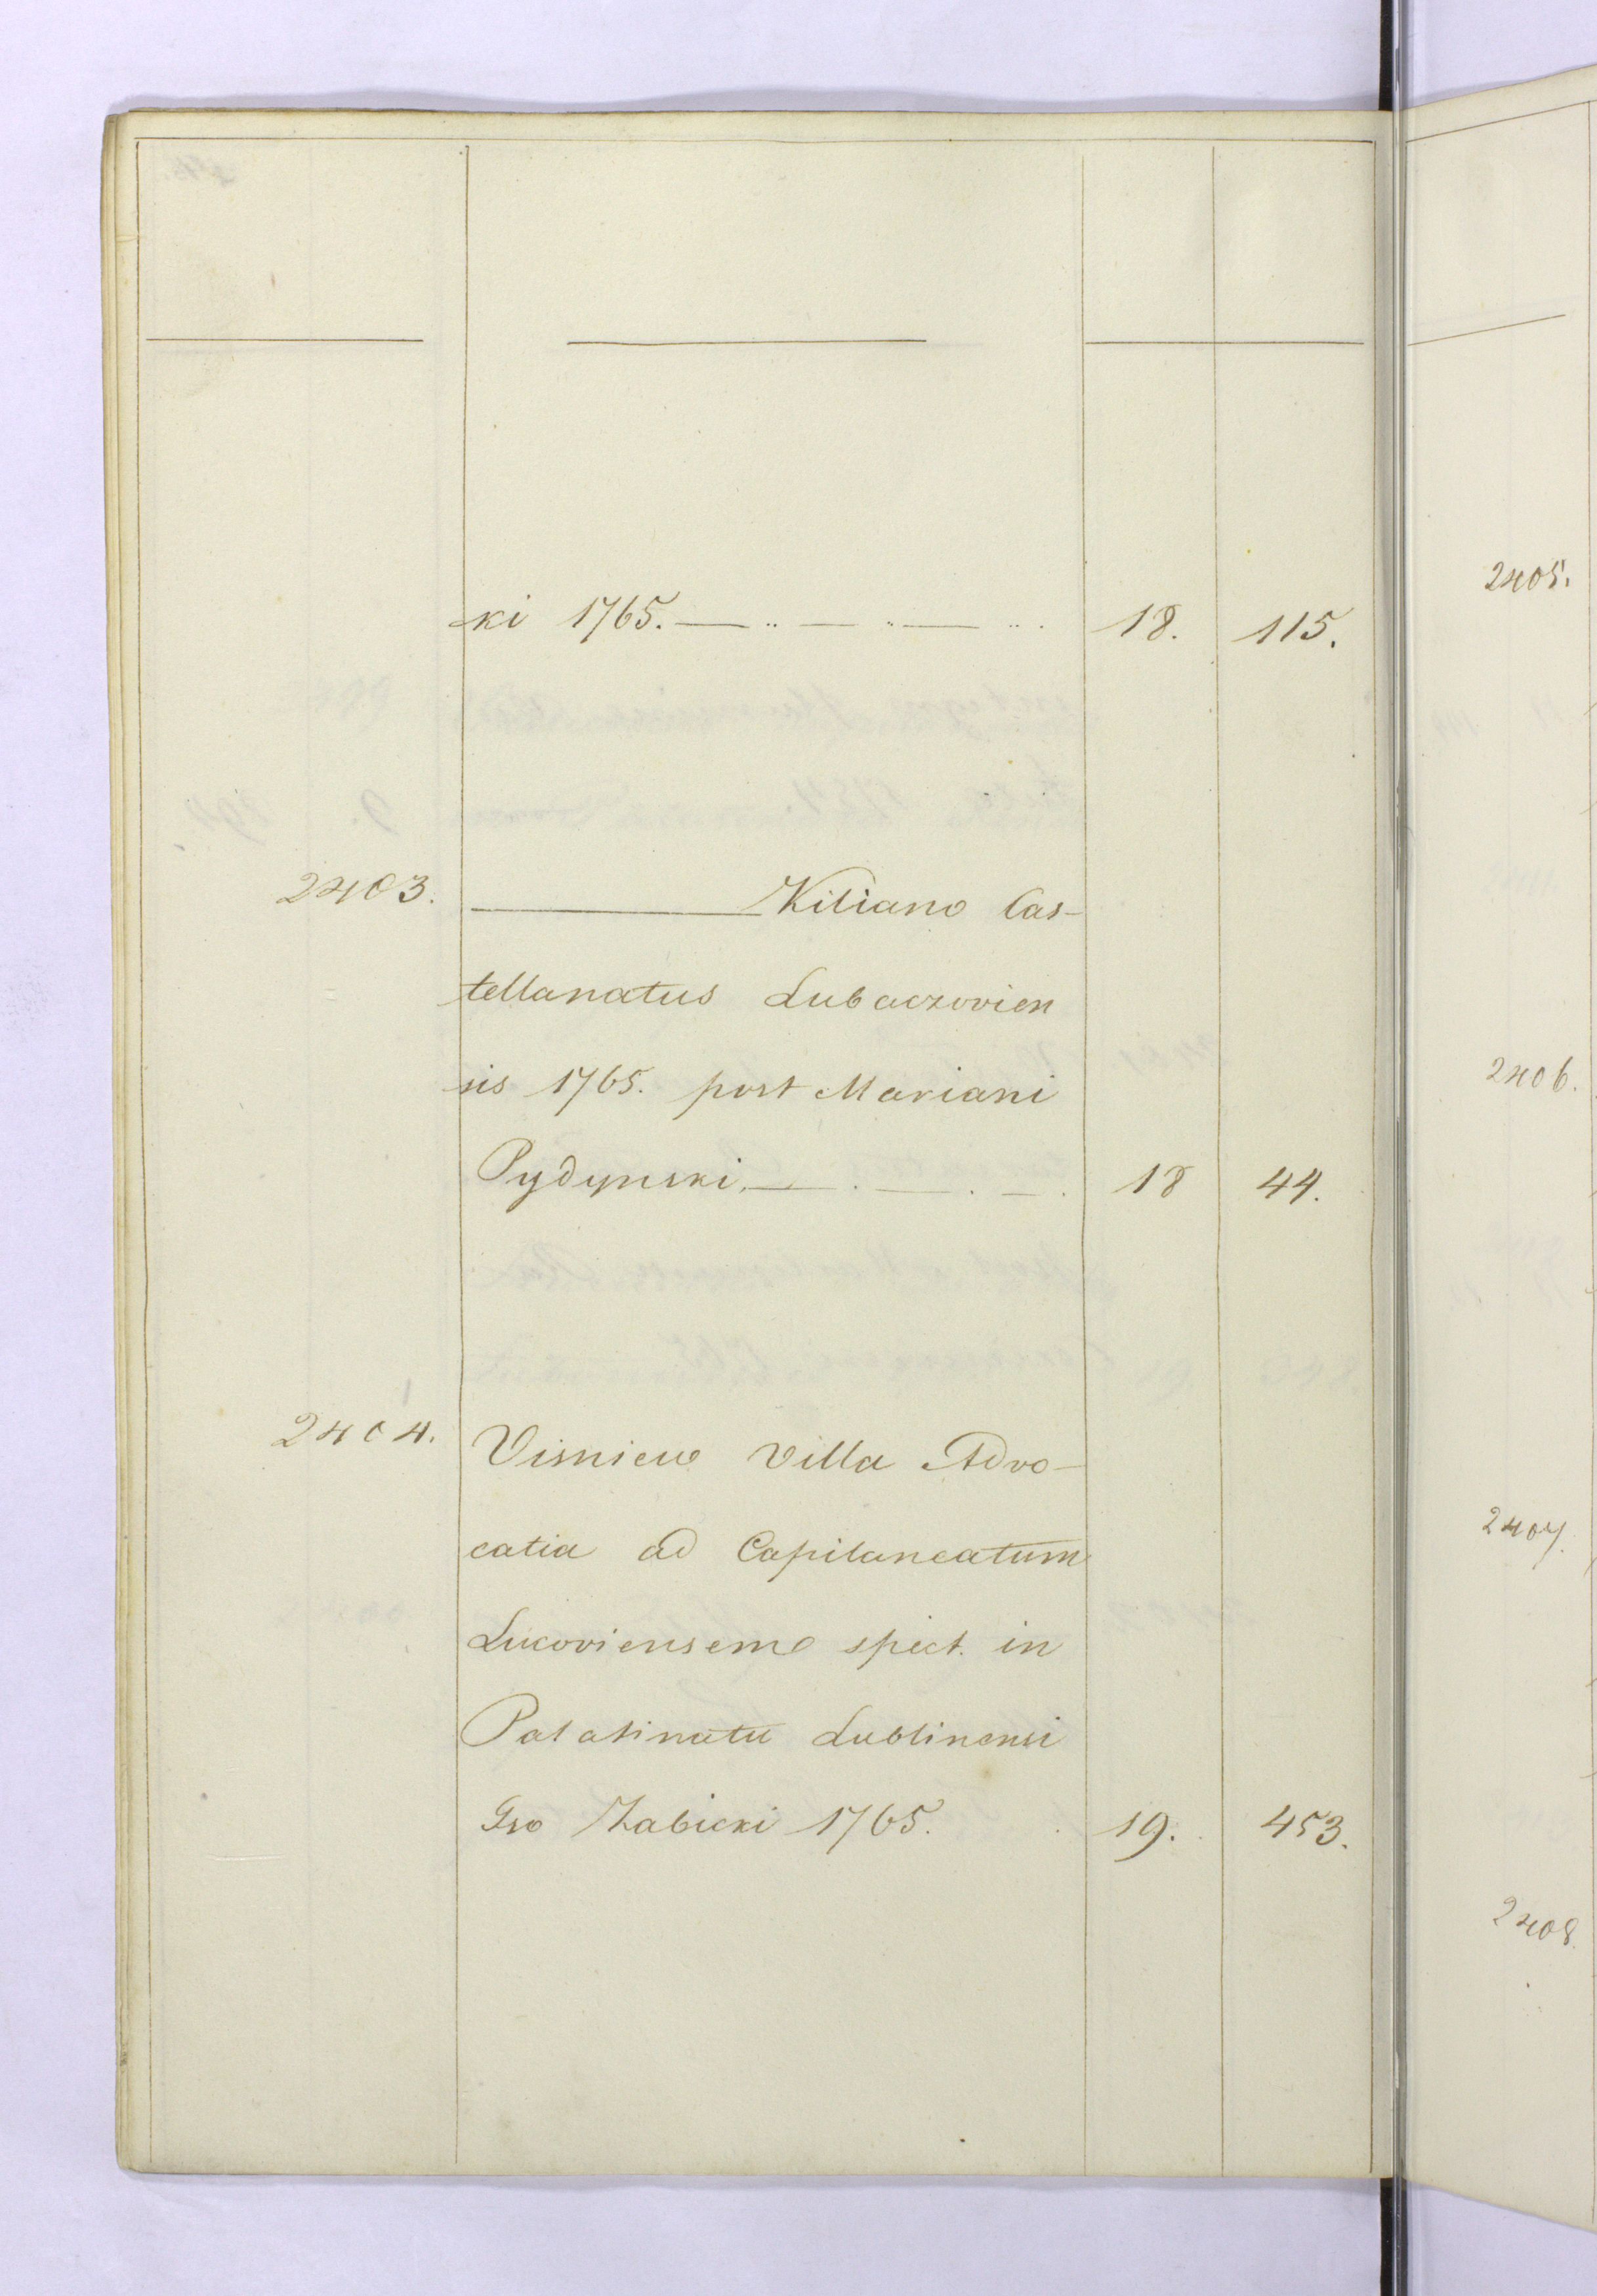 ki 1765. — .. — .. — .. . 18. 115.
2403. ——— Kiliano Cas-
tellanatus Lubaczovien
sis 1765. post Mariani
Pydynski. — . — . — . 18 44.
2404. Visniew Villa Advo-
catia ad Capitaneatum
Lucoviensem spect. in
Palatinatu Lublinensi
Gso Zabicki 1765. 19. 453.
2405.
2406.
2407.
2408.